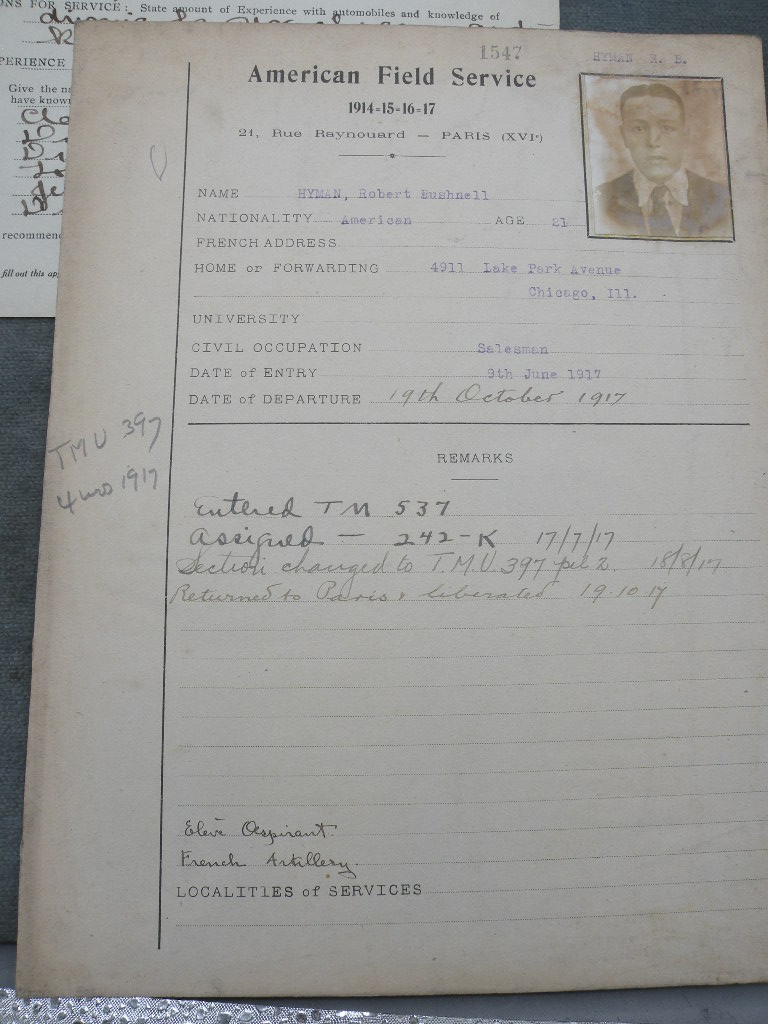 ONS FOR SERVICE: State amount of Experience with automobiles and knowledge of
PERIENCE
Give the na
have known
recommend
fill out this ap
1547
HYMAN R. B.
American Field Service
1914=15=16=17
21, Rue Raynouard — PARIS (XVIe)
NAME HYMAN, Robert Bushnell
NATIONALITY American AGE 21
FRENCH ADDRESS
HOME or FORWARDING 4911 Lake Park Avenue
Chicago, Ill.
UNIVERSITY
CIVIL OCCUPATION Salesman
DATE of ENTRY 9th June 1917
DATE of DEPARTURE 19th October 1917
REMARKS
TMU 397
4 mos 1917
Entered TM 537
Assigned — 242-K 17/7/17
Section changed to T.M.U. 397 pel 2. 18/8/17
Returned to Paris & liberated 19.10.17
Elève Aspirant.
French Artillery.
LOCALITIES of SERVICES